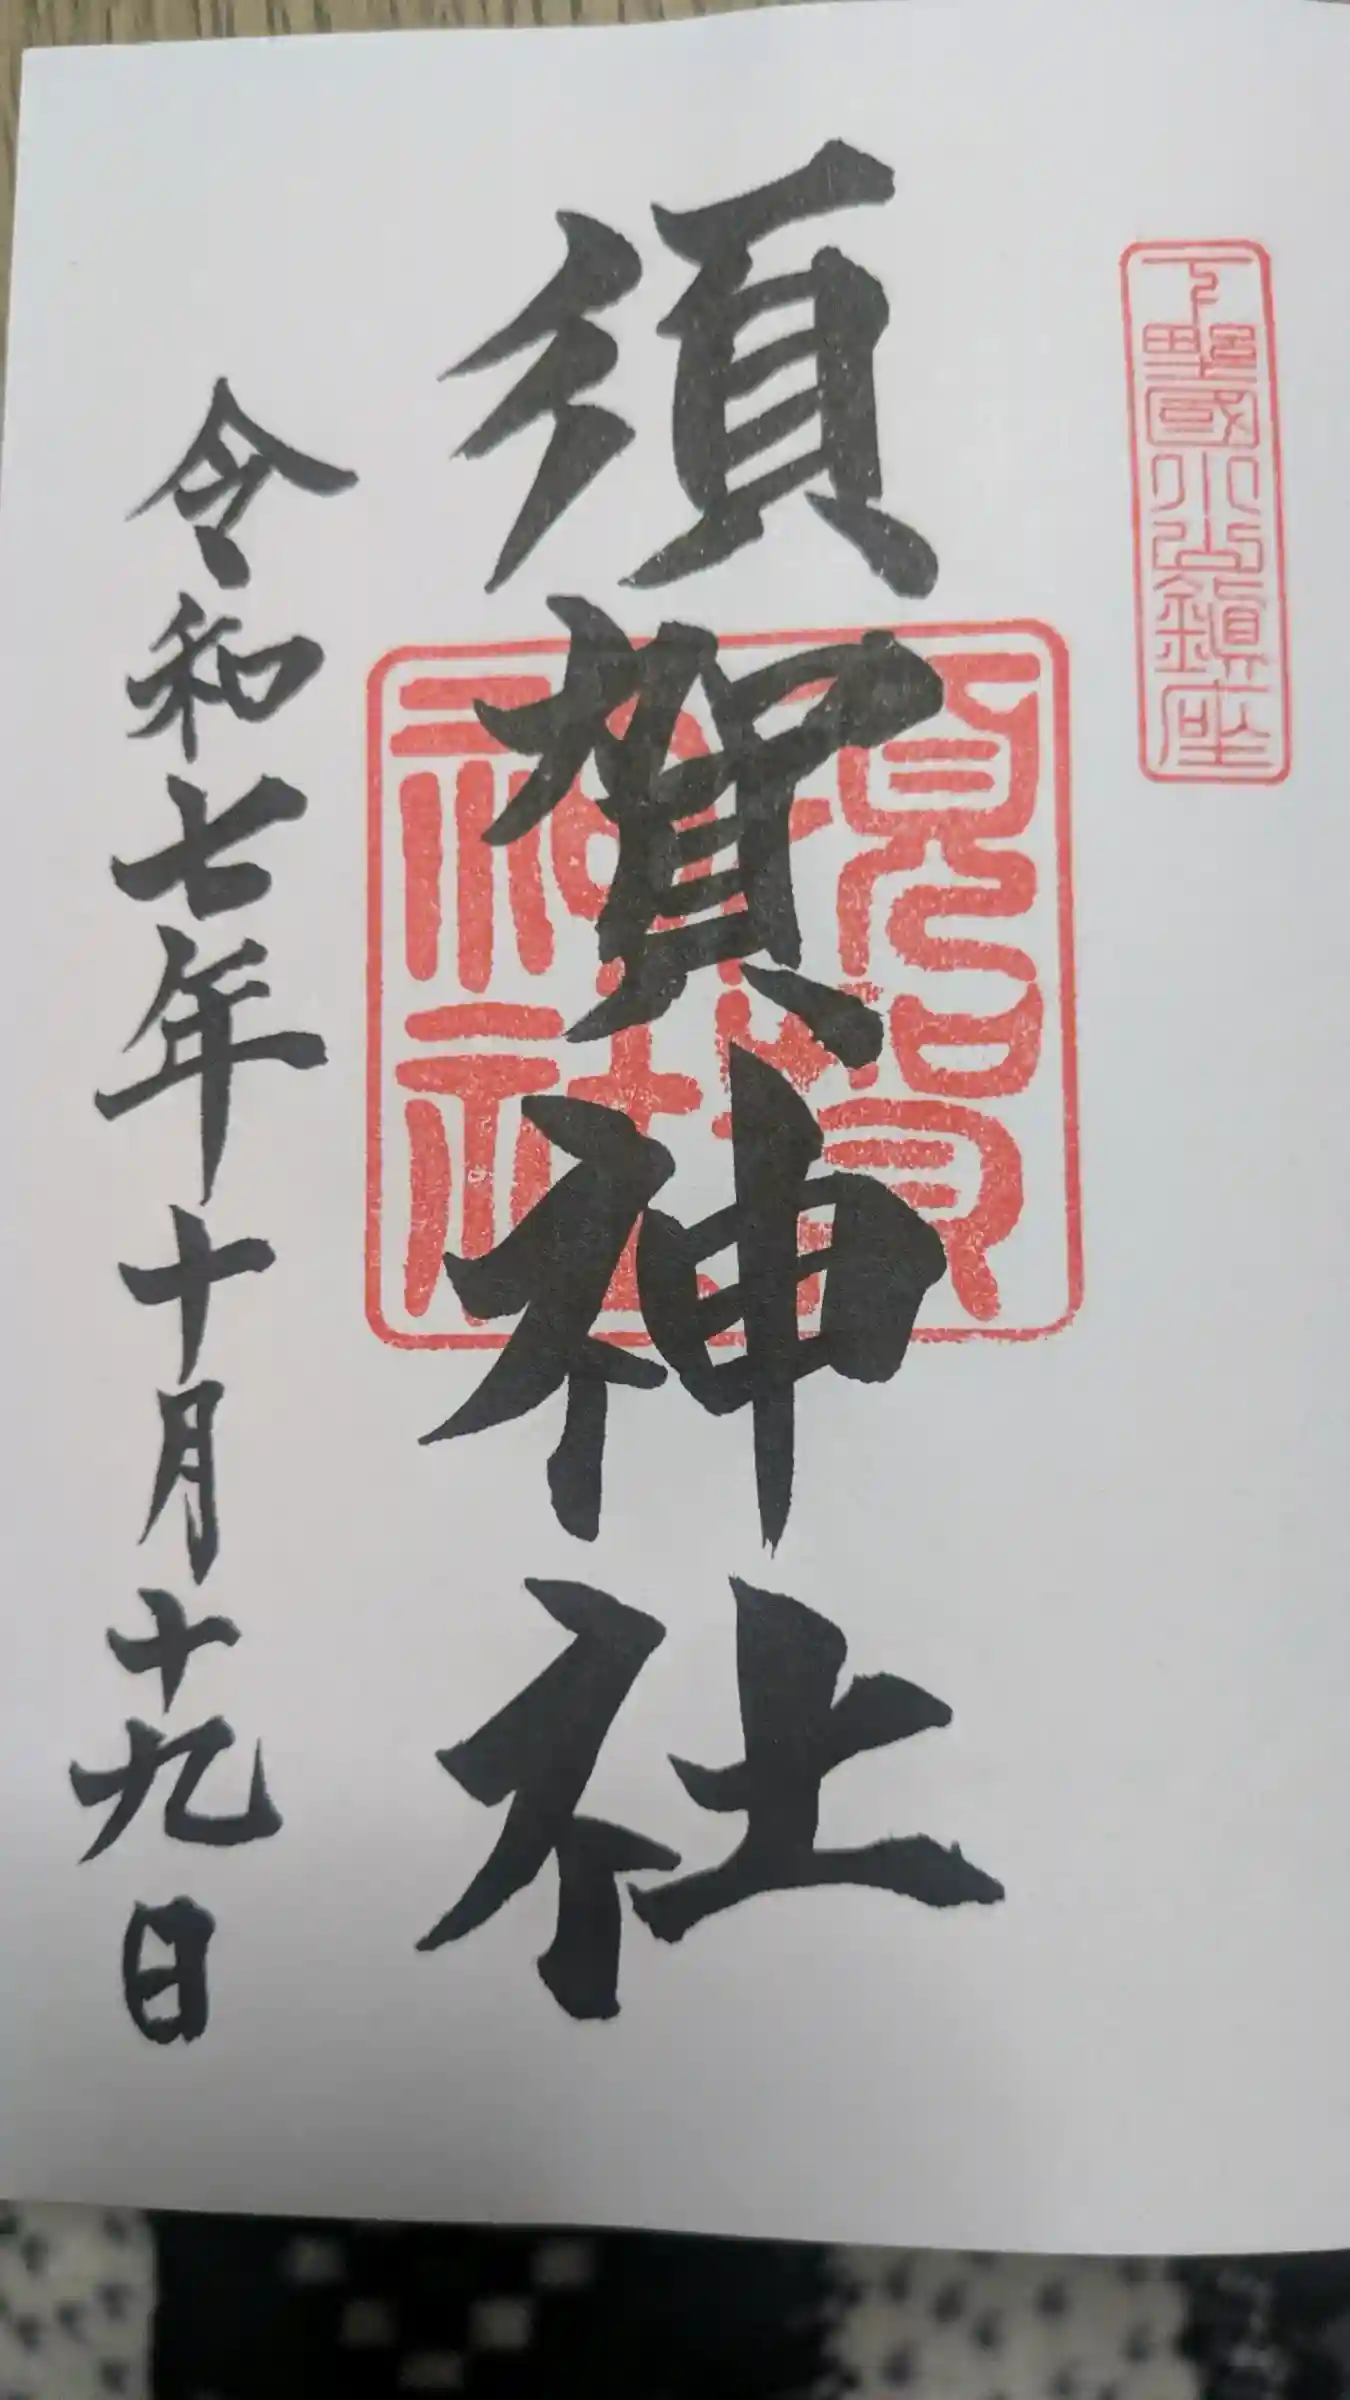 下野國小山鎮座
須賀神社
須賀神社
令和七年十月十九日